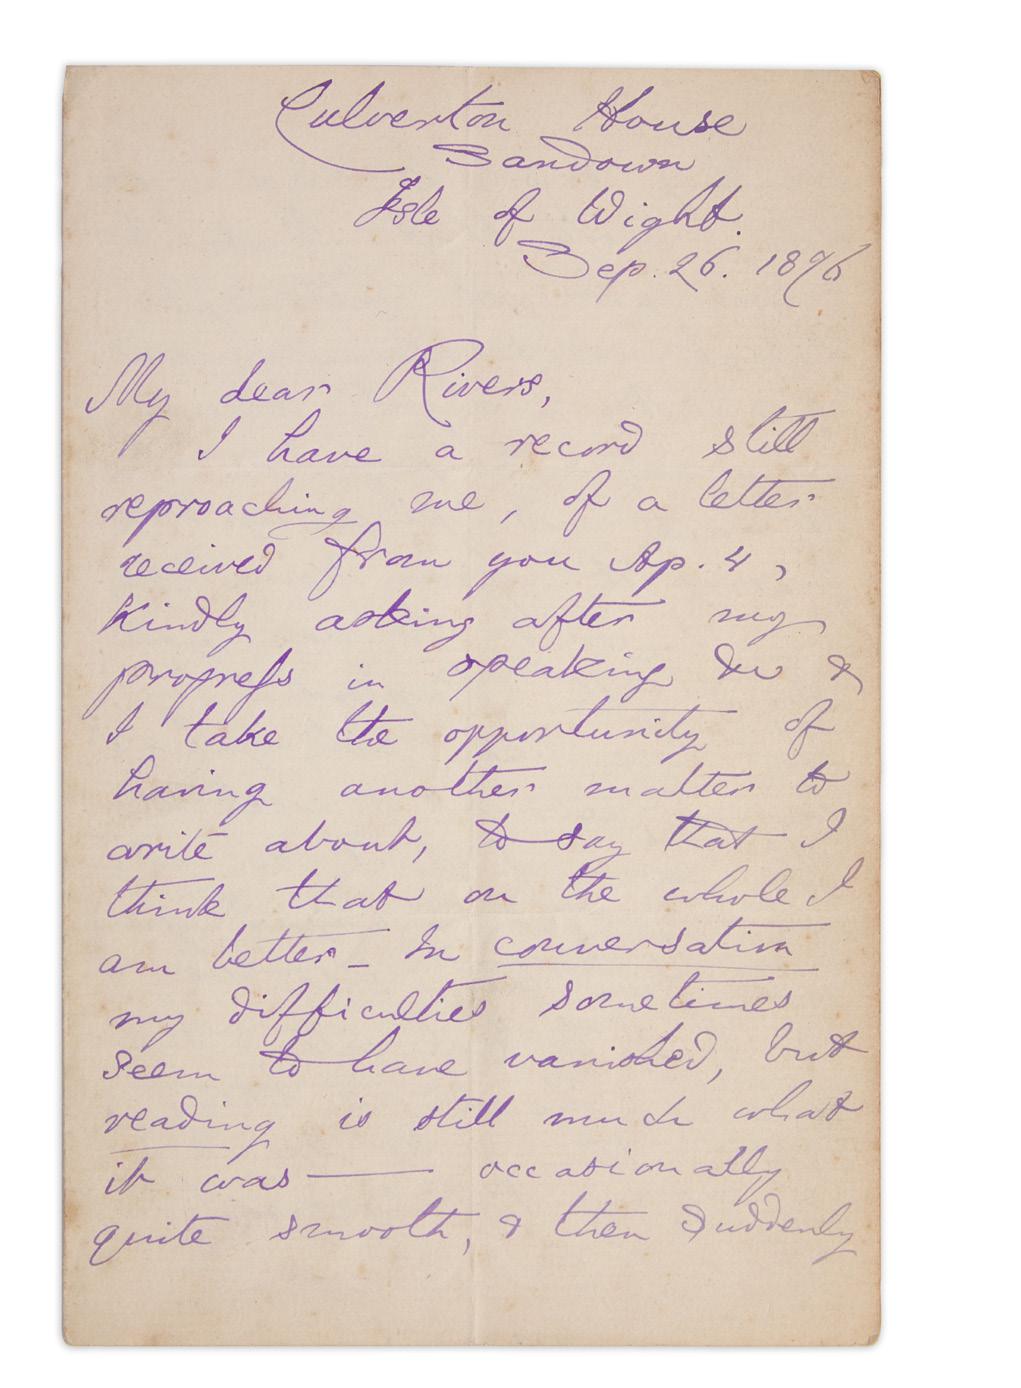 Culverton House
Sandown
Isle of Wight.
Sep. 26. 1876
My dear Rivers,
I have a record still
reproaching me, of a letter
received from you Ap. 4,
kindly asking after my
progress in speaking &c &
I take the opportunity of
having another matter to
write about, to say that I
think that on the whole I
am better — In conversation
my difficulties sometimes
seem to have vanished, but
reading is still much what
it was — occasionally
quite smooth, & then suddenly